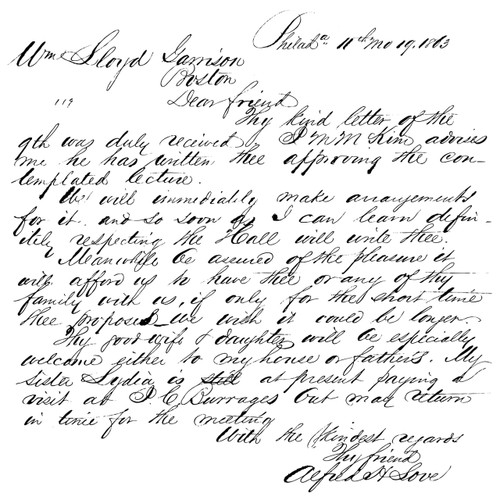 Philada. 11th mo 19. 1863
Wm. Lloyd Garrison
Boston
119
Dear friend
Thy kind letter of the
9th was duly received J M M Kim advises
me he has written thee approving the con-
templated lecture.
We will immediatly make arrangements
for it. and so soon as I can learn defin-
itely respecting the Hall will write thee.
Meanwhile be assured of the pleasure it
will afford us to have thee or any of thy
family with us, if only for the short time
thee proposes_ We wish it could be longer.
Thy good wife & daughter will be especially
welcome either to my house or father's. My
sister Lydia is still at present paying a
visit at J. C. Burrages but may return
in time for the meeting
With the kindest regards
Thy friend
Alfred H Love